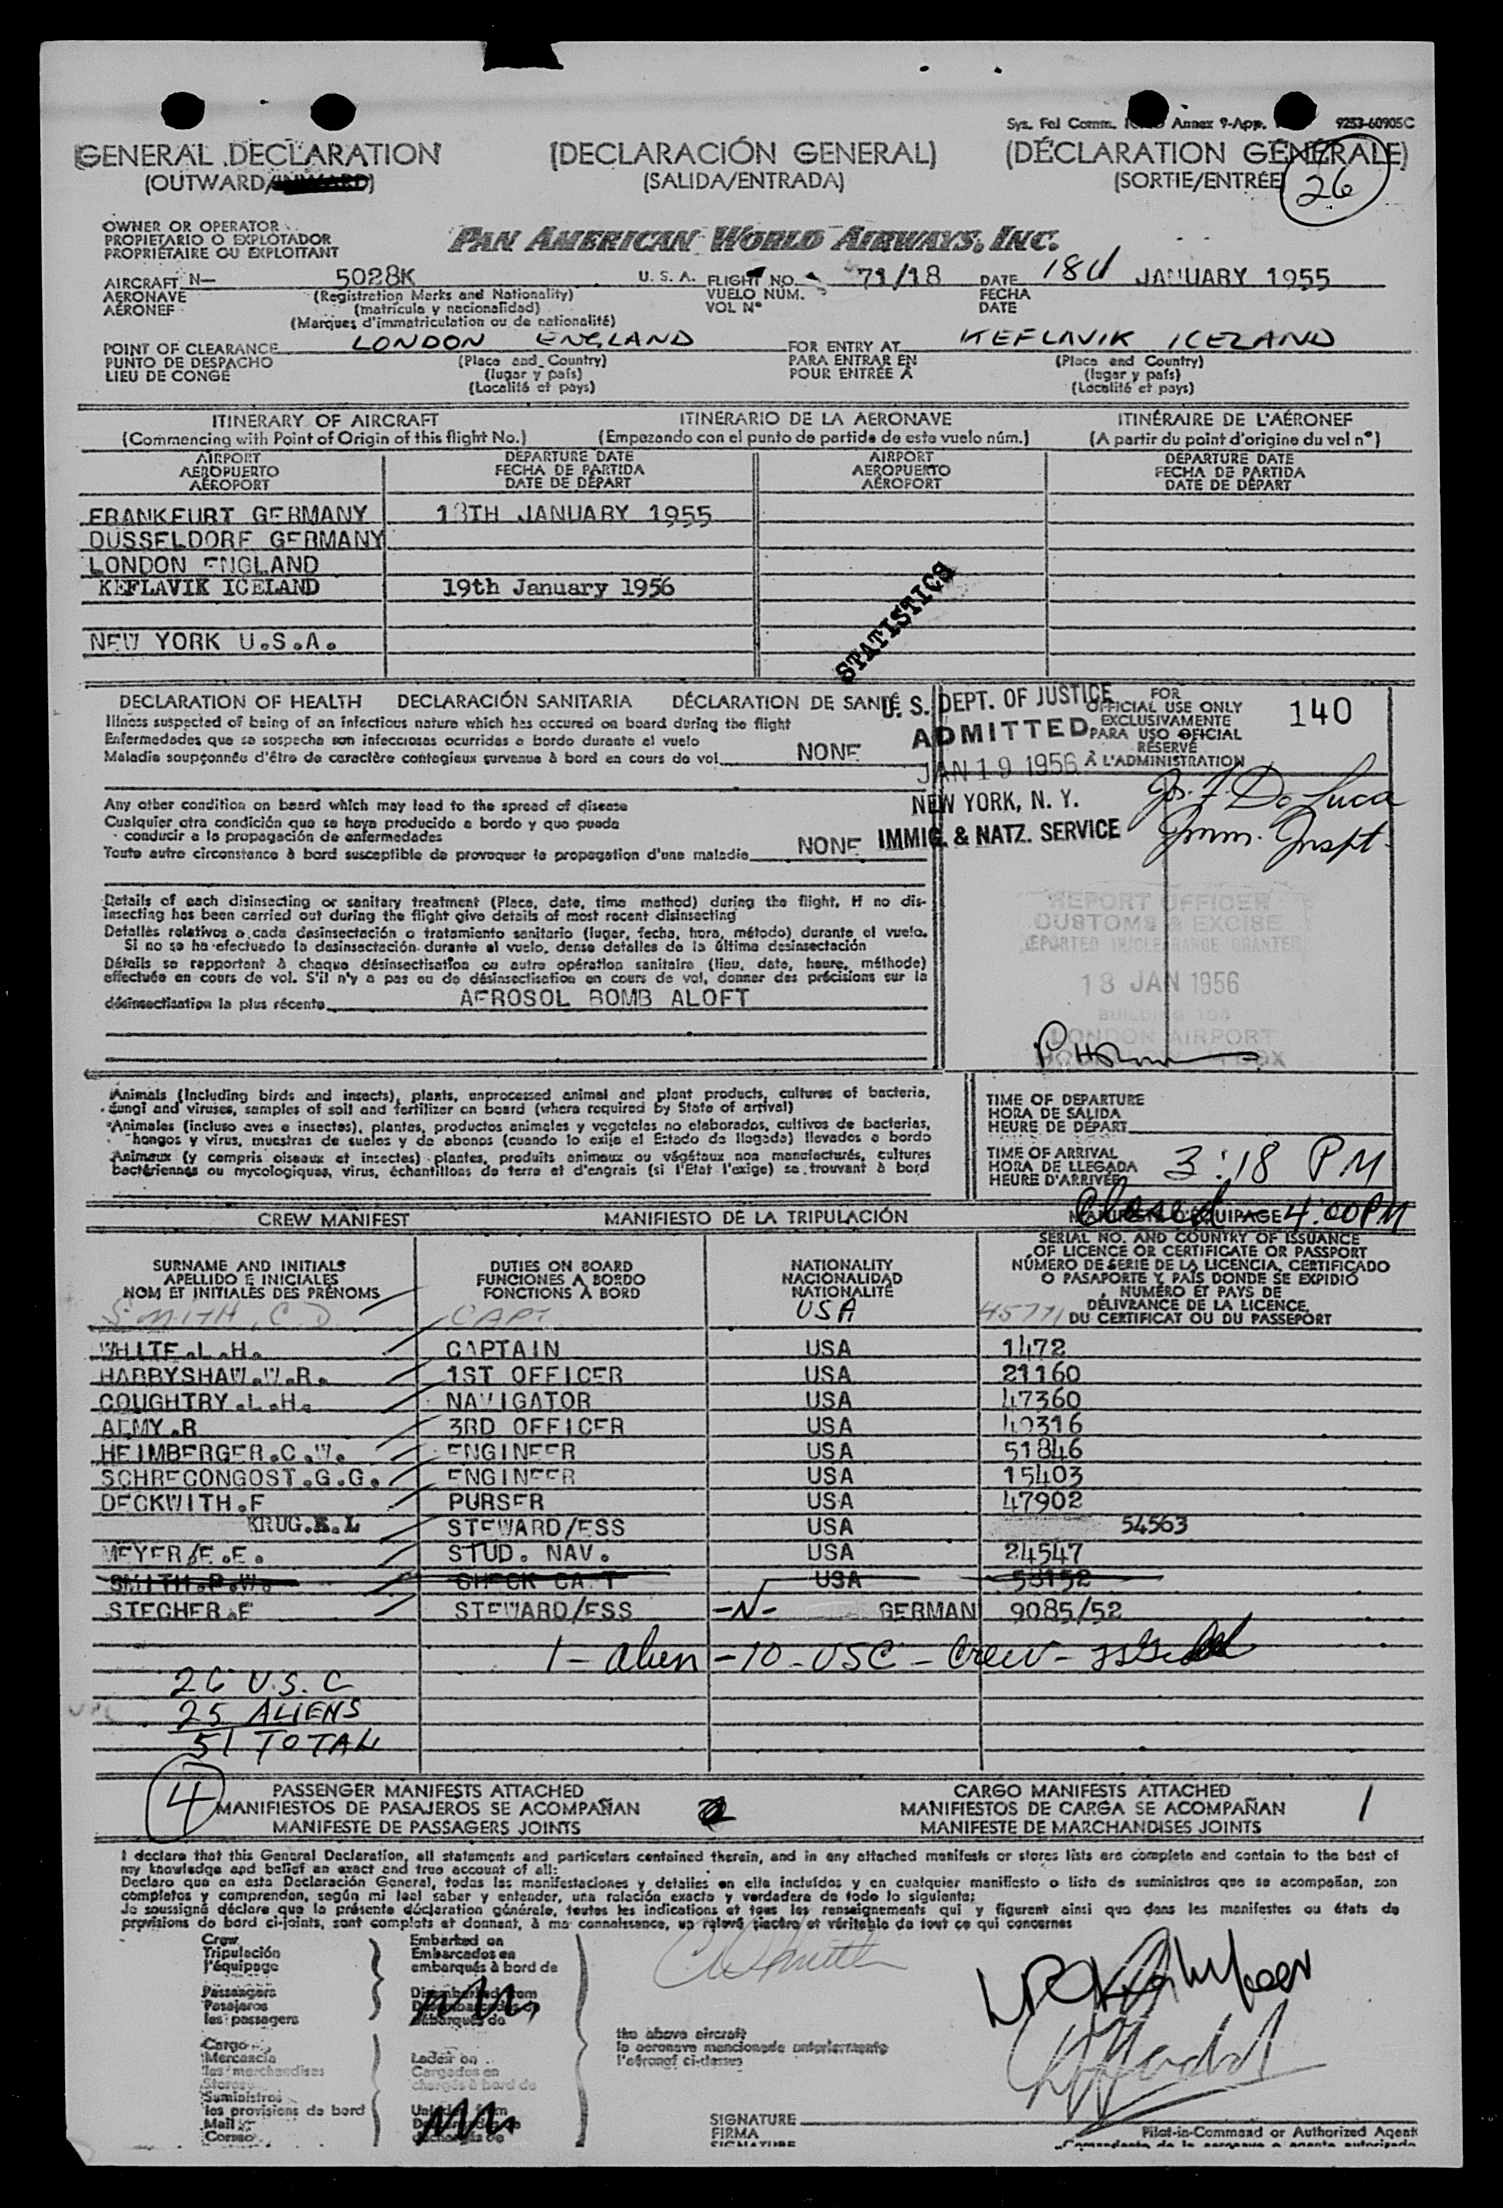 Sys. Fel Comm. Annex 9-App. 9253-60905C
GENERAL DECLARATION (DECLARACIÓN GENERAL) (DÉCLARATION GÉNÉRALE)
(OUTWARD/INWARD) (SALIDA/ENTRADA) (SORTIE/ENTRÉE)
26
OWNER OR OPERATOR
PROPIETARIO O EXPLOTADOR
PROPRIÉTAIRE OU EXPLOITANT
PAN AMERICAN WORLD AIRWAYS, INC.
AIRCRAFT N— 5028K U. S. A. FLIGHT NO. 71/18 DATE JANUARY 1955
AERONAVE (Registration Marks and Nationality) VUELO NUM. FECHA
AÉRONEF (matrícula y nacionalidad) VOL Nº DATE
(Marques d'immatriculation ou de nationalité)
POINT OF CLEARANCE LONDON ENGLAND FOR ENTRY AT KEFLAVIK ICELAND
PUNTO DE DESPACHO (Place and Country) PARA ENTRAR EN (Place and Country)
LIEU DE CONGÉ (lugar y país) POUR ENTRÉE À (lugar y país)
(Localité et pays) (Localité et pays)
ITINERARY OF AIRCRAFT ITINERARIO DE LA AERONAVE ITINÉRAIRE DE L'AÉRONEF
(Commencing with Point of Origin of this flight No.) (Empezando con el punto de partida de este vuelo núm.) (A partir du point d'origine du vol nº)
AIRPORT DEPARTURE DATE AIRPORT DEPARTURE DATE
AEROPUERTO FECHA DE PARTIDA AEROPUERTO FECHA DE PARTIDA
AÉROPORT DATE DE DÉPART AÉROPORT DATE DE DÉPART
FRANKFURT GERMANY 18TH JANUARY 1955
DUSSELDORF GERMANY
LONDON ENGLAND
KEFLAVIK ICELAND 19th January 1956
STATISTICS
NEW YORK U.S.A.
DECLARATION OF HEALTH DECLARACIÓN SANITARIA DÉCLARATION DE SANTÉ
Illness suspected of being of an infectious nature which has occured on board during the flight
Enfermedades que se sospeche son infecciosas ocurridas a bordo durante el vuelo
Maladie soupçonnée d'être de caractère contagieux survenue à bord en cours de vol NONE
U. S. DEPT. OF JUSTICE
ADMITTED
JAN 19 1956
NEW YORK, N. Y.
IMMIG. & NATZ. SERVICE
FOR
OFFICIAL USE ONLY
EXCLUSIVAMENTE
PARA USO OFICIAL
RÉSERVÉ
À L'ADMINISTRATION
140
De Luca
Imm. Inspt.
Any other condition on board which may lead to the spread of disease
Cualquier otra condición que se haya producido a bordo y que pueda
conducir a la propagación de enfermedades
Toute autre circonstance à bord susceptible de provoquer la propagation d'une maladie NONE
Details of each disinsecting or sanitary treatment (Place, date, time method) during the flight. If no dis-
insecting has been carried out during the flight give details of most recent disinsecting
Detalles relativos a cada desinsectación o tratamiento sanitario (lugar, fecha, hora, método) durante el vuelo.
Si no se ha efectuado la desinsectación durante el vuelo, dense detalles de la última desinsectación
Détails se rapportant à chaque désinsectisation ou autre opération sanitaire (lieu, date, heure, méthode)
effectuée en cours de vol. S'il n'y a pas eu de désinsectisation en cours de vol, donner des précisions sur la
désinsectisation la plus récente AEROSOL BOMB ALOFT
REPORT OFFICER
CUSTOMS & EXCISE
18 JAN 1956
LONDON AIRPORT
Animals (Including birds and insects), plants, unprocessed animal and plant products, cultures of bacteria,
fungi and viruses, samples of soil and fertilizer on board (where required by State of arrival)
Animales (incluso aves e insectos), plantas, productos animales y vegetales no elaborados, cultivos de bacterias,
hongos y virus, muestras de suelos y de abonos (cuando lo exija el Estado de llegada) llevados a bordo
Animaux (y compris oiseaux et insectes) plantes, produits animaux ou végétaux non manufacturés, cultures
bactériennes ou mycologiques, virus, échantillons de terre et d'engrais (si l'Etat l'exige) se trouvant à bord
TIME OF DEPARTURE
HORA DE SALIDA
HEURE DE DÉPART
TIME OF ARRIVAL
HORA DE LLEGADA
HEURE D'ARRIVÉE 3:18 PM
Closed 4:00 PM
CREW MANIFEST MANIFIESTO DE LA TRIPULACIÓN
SURNAME AND INITIALS DUTIES ON BOARD NATIONALITY SERIAL NO. AND COUNTRY OF ISSUANCE
APELLIDO E INICIALES FUNCIONES A BORDO NACIONALIDAD OF LICENCE OR CERTIFICATE OR PASSPORT
NOM ET INITIALES DES PRÉNOMS FONCTIONS A BORD NATIONALITÉ NÚMERO DE SERIE DE LA LICENCIA, CERTIFICADO
O PASAPORTE Y PAÍS DONDE SE EXPIDIÓ
NUMÉRO ET PAYS DE
DÉLIVRANCE DE LA LICENCE,
DU CERTIFICAT OU DU PASSEPORT
SMITH, C.D. CAPT. USA 45771
WHITE.L.H. CAPTAIN USA 1472
HARRYSHAW.W.R. 1ST OFFICER USA 21160
COUGHTRY.L.H. NAVIGATOR USA 47360
ALMY.R 3RD OFFICER USA
HEIMBERGER.C.W. ENGINEER USA 51846
SCHRECONGOST.G.G. ENGINEER USA 15403
DECKWITH.F PURSER USA 47902
KRUG.K.L STEWARD/ESS USA 54563
MEYER.E.E. STUD. NAV. USA 24547
SMITH.P.W. CHECK CAPT USA 58152
STECHER.E STEWARD/ESS -N- GERMAN 9085/52
1 - alien - 10 - USC - Crew -
26 U.S.C
25 ALIENS
51 TOTAL
4
PASSENGER MANIFESTS ATTACHED CARGO MANIFESTS ATTACHED
MANIFIESTOS DE PASAJEROS SE ACOMPAÑAN 2 MANIFIESTOS DE CARGA SE ACOMPAÑAN 1
MANIFESTE DE PASSAGERS JOINTS MANIFESTE DE MARCHANDISES JOINTS
I declare that this General Declaration, all statements and particulars contained therein, and in any attached manifests or stores lists are complete and contain to the best of
my knowledge and belief an exact and true account of all:
Declaro que en esta Declaración General, todas las manifestaciones y detalles en ella incluídos y en cualquier manifiesto o lista de suministros que se acompañan, son
completos y comprenden, según mi leal saber y entender, una relación exacta y verdadera de todo lo siguiente:
Je soussigné déclare que la présente déclaration générale, toutes les indications et tous les renseignements qui y figurent ainsi que dans les manifestes ou états de
provisions de bord ci-joints, sont complets et donnent, à ma connaissance, un relevé sincère et véritable de tout ce qui concernes
Crew Embarked on
Tripulación Embarcados en
l'équipage embarqués à bord de
Passengers Disembarked from
Pasajeros
les passagers débarqués de
the above aircraft
la aeronave mencionada anteriormente
l'aéronef ci-dessus
Cargo Laden on
Mercancía Cargados en
les marchandises chargés à bord de
Stores
Suministros
les provisions de bord
Mail
Correo
SIGNATURE
FIRMA
SIGNATURE
Pilot-in-Command or Authorized Agent
Comandante de la aeronave o agente autorizado